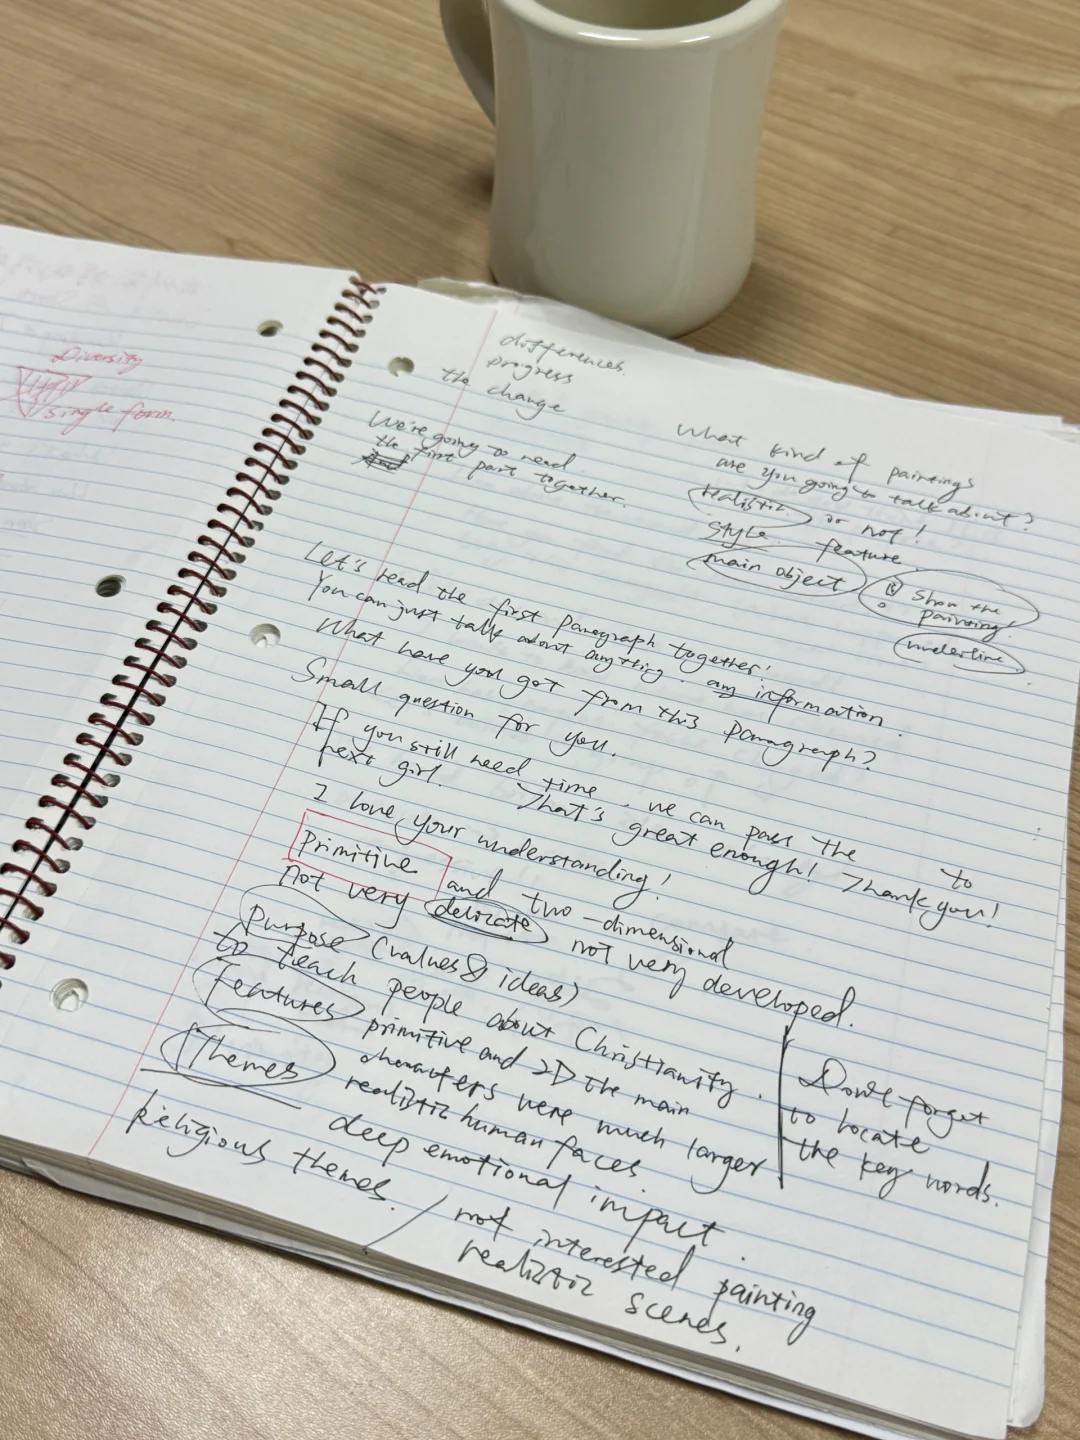 Diversity
single form.
differences.
progress
the change
We're going to read
the first part together.
What kind of paintings
are you going to talk about?
realistic or not!
style. feature.
main object
Show the
painting!
underline
Let's read the first paragraph together!
You can just talk about anything. any information.
What have you got from this paragraph?
Small question for you.
If you still need time, we can pass the to
next girl. That's great enough! Thank you!
I love your understanding!
Primitive and two-dimensional
not very delicate not very developed.
Purpose (values & ideas)
to teach people about Christianity.
Features primitive and 2D the main
characters were much larger
Themes realistic human faces
deep emotional impact.
Religious themes. / not interested painting
realistic scenes.
Don't forget
to locate
the key words.